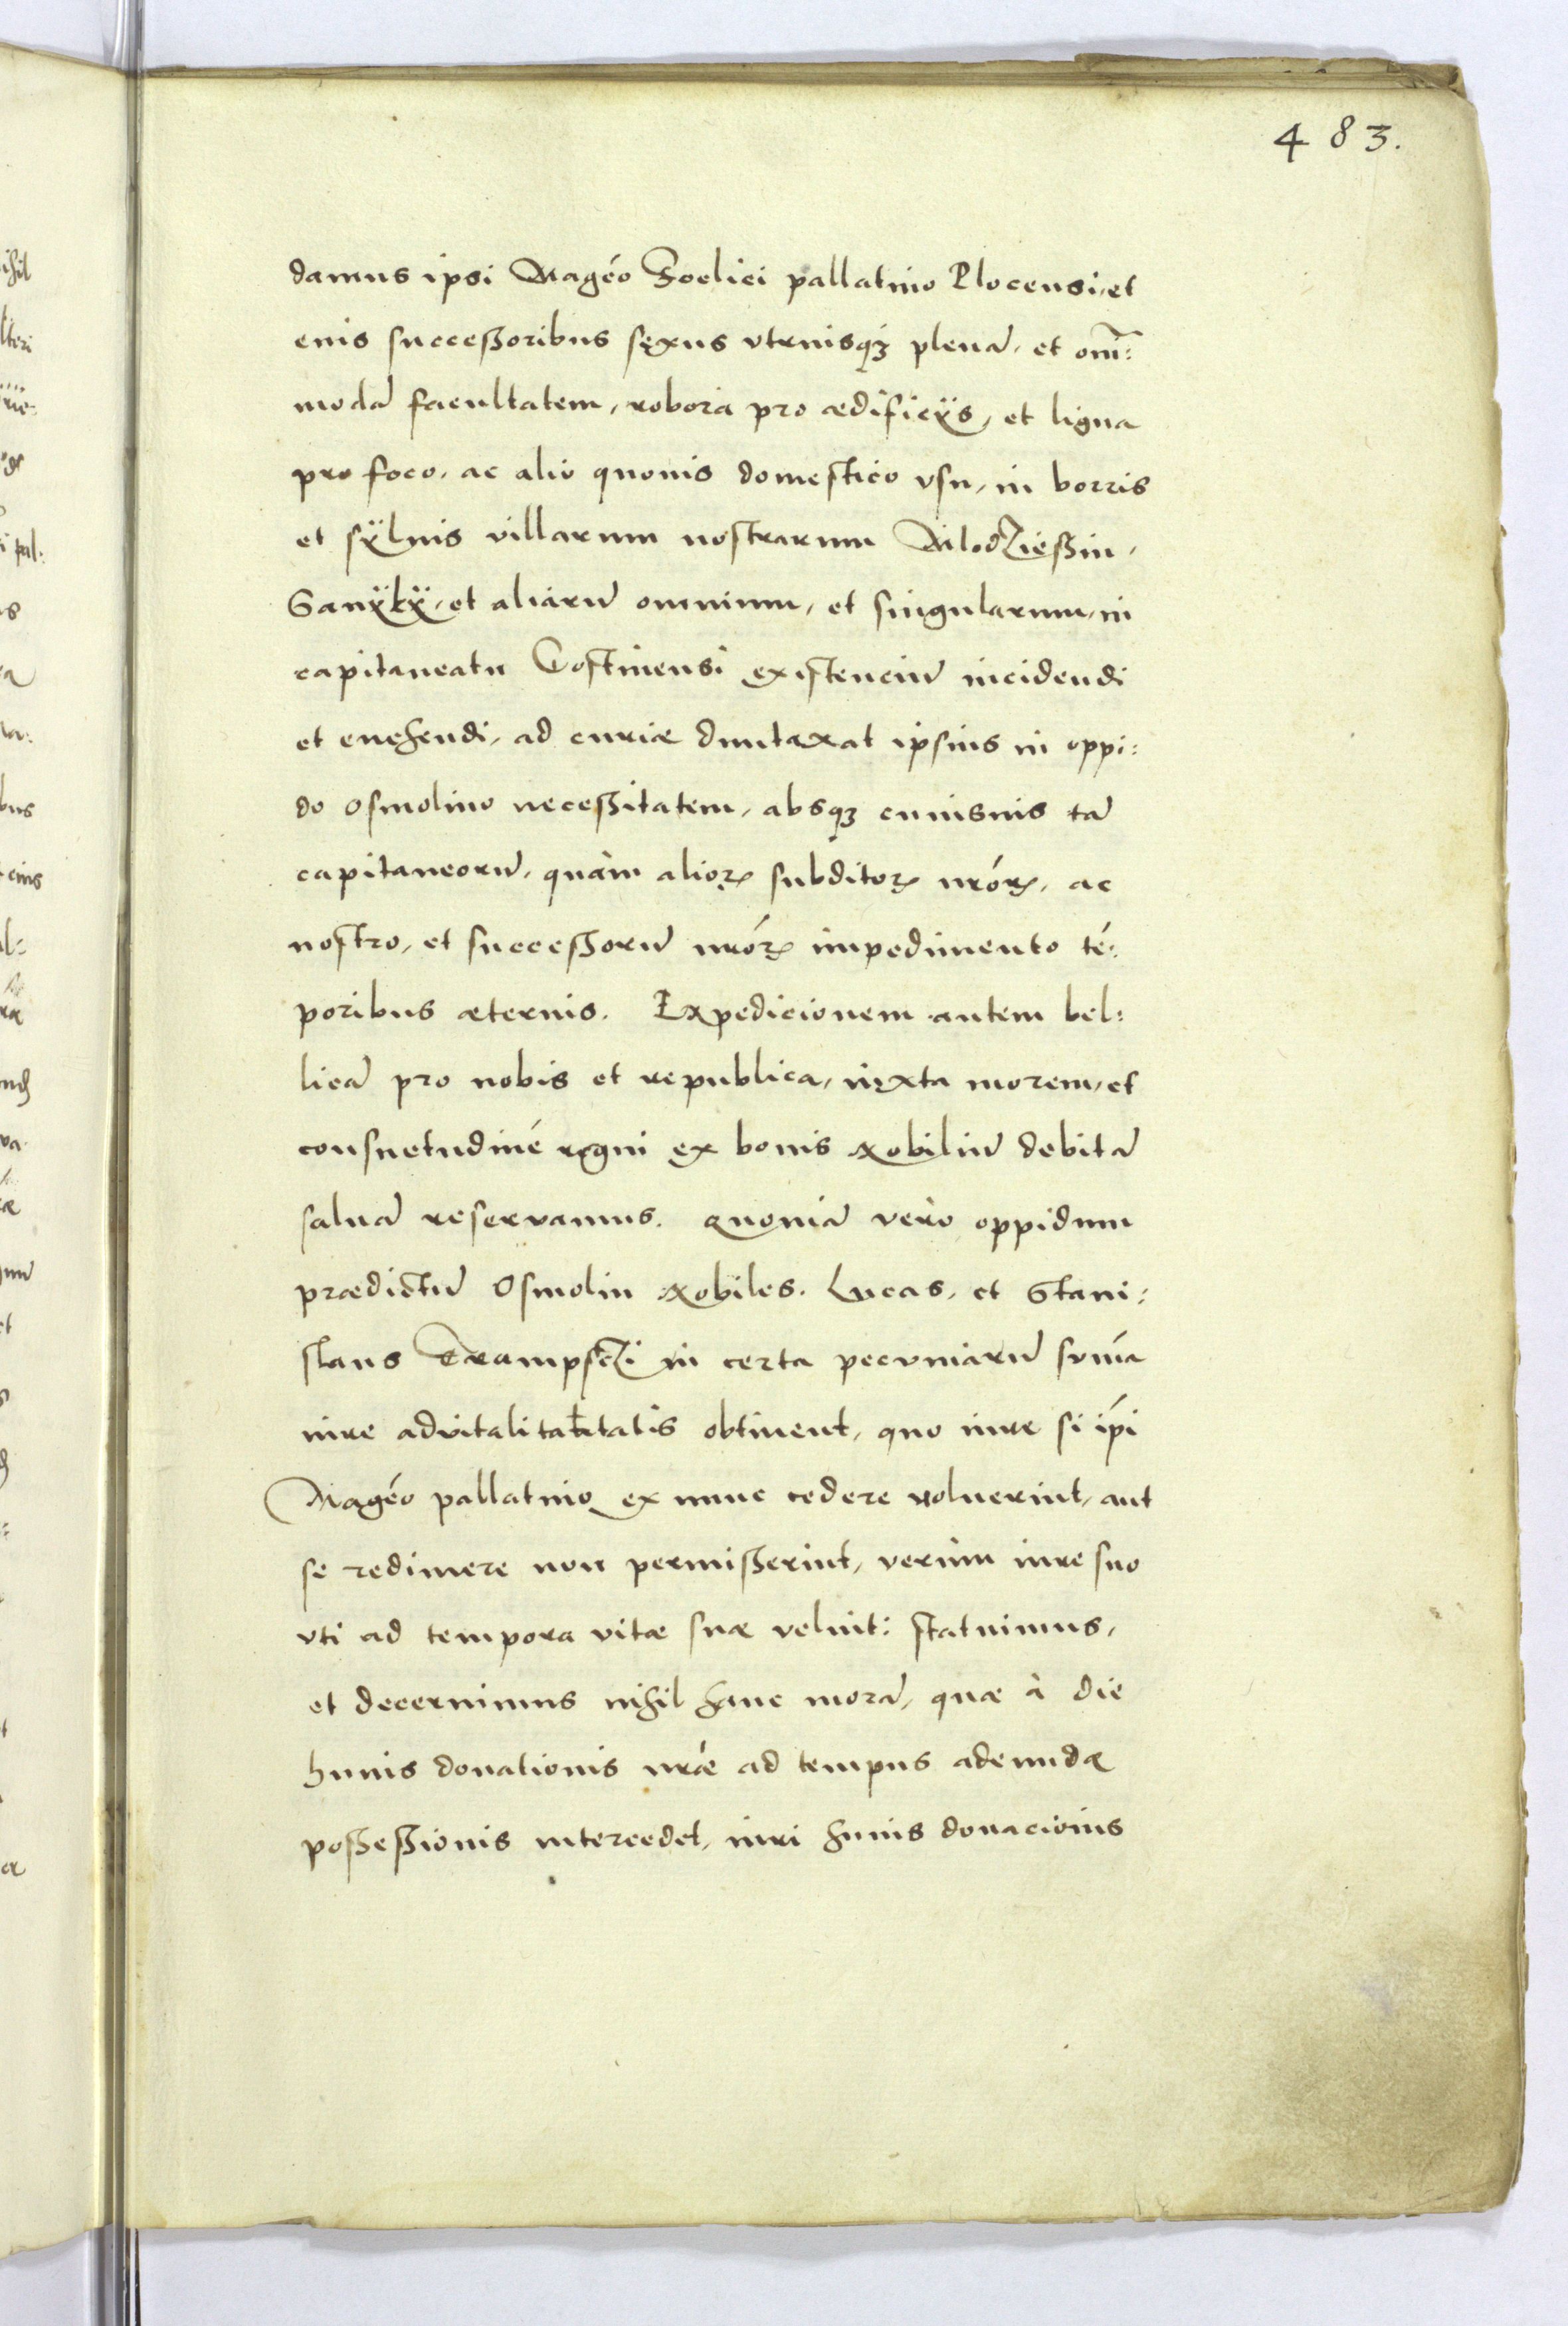 483.
damus ipsi Magco Foelici pallatino Plocensi, et
euis succeßoribus sexus vtruisq3 plenā, et om̄:
modā facultatem, robora pro ædificÿs, et ligna
pro foco, ac alio quouis domestico vsu, in borris
et sÿluis villarum nostrarum Mlodzießin,
Sanÿkÿ, et aliarū omnium, et singularum, in
capitaneatu Gostinensi existenciū incidendi
et euehendi, ad curiæ duntaxat ipsius in oppi:
do Osmolino neceßitatem, absq3 cuiusuis tā
capitaneorū, quàm alioꝝ subditoꝝ nr̄oꝝ, ac
nostro, et succeßorū nr̄oꝝ impedimento tē:
poribus æternis. Expedicionem autem bel:
licā pro nobis et republica, iuxta morem, et
consuetudinē regni ex bonis Nobiliū debitā
saluā reseruamus. Quoniā verò oppidum
prædictū Osmolin Nobiles. Lucas, et Stani:
slaus Trampsczi in certa pecuniarū sum̄a
iure aduitalitatitatis obtinent, quo iure si ip̄i
Magco pallatino ex nunc cedere noluerint, aut
se redimere non permißerint, verùm iure suo
vti ad tempora vitæ suæ velint: statuimus,
et decernimus nihil hanc morā, quæ à die
huius donationis nr̄æ ad tempus adeundæ
poßeßionis intercedet, iuri huius donacionis